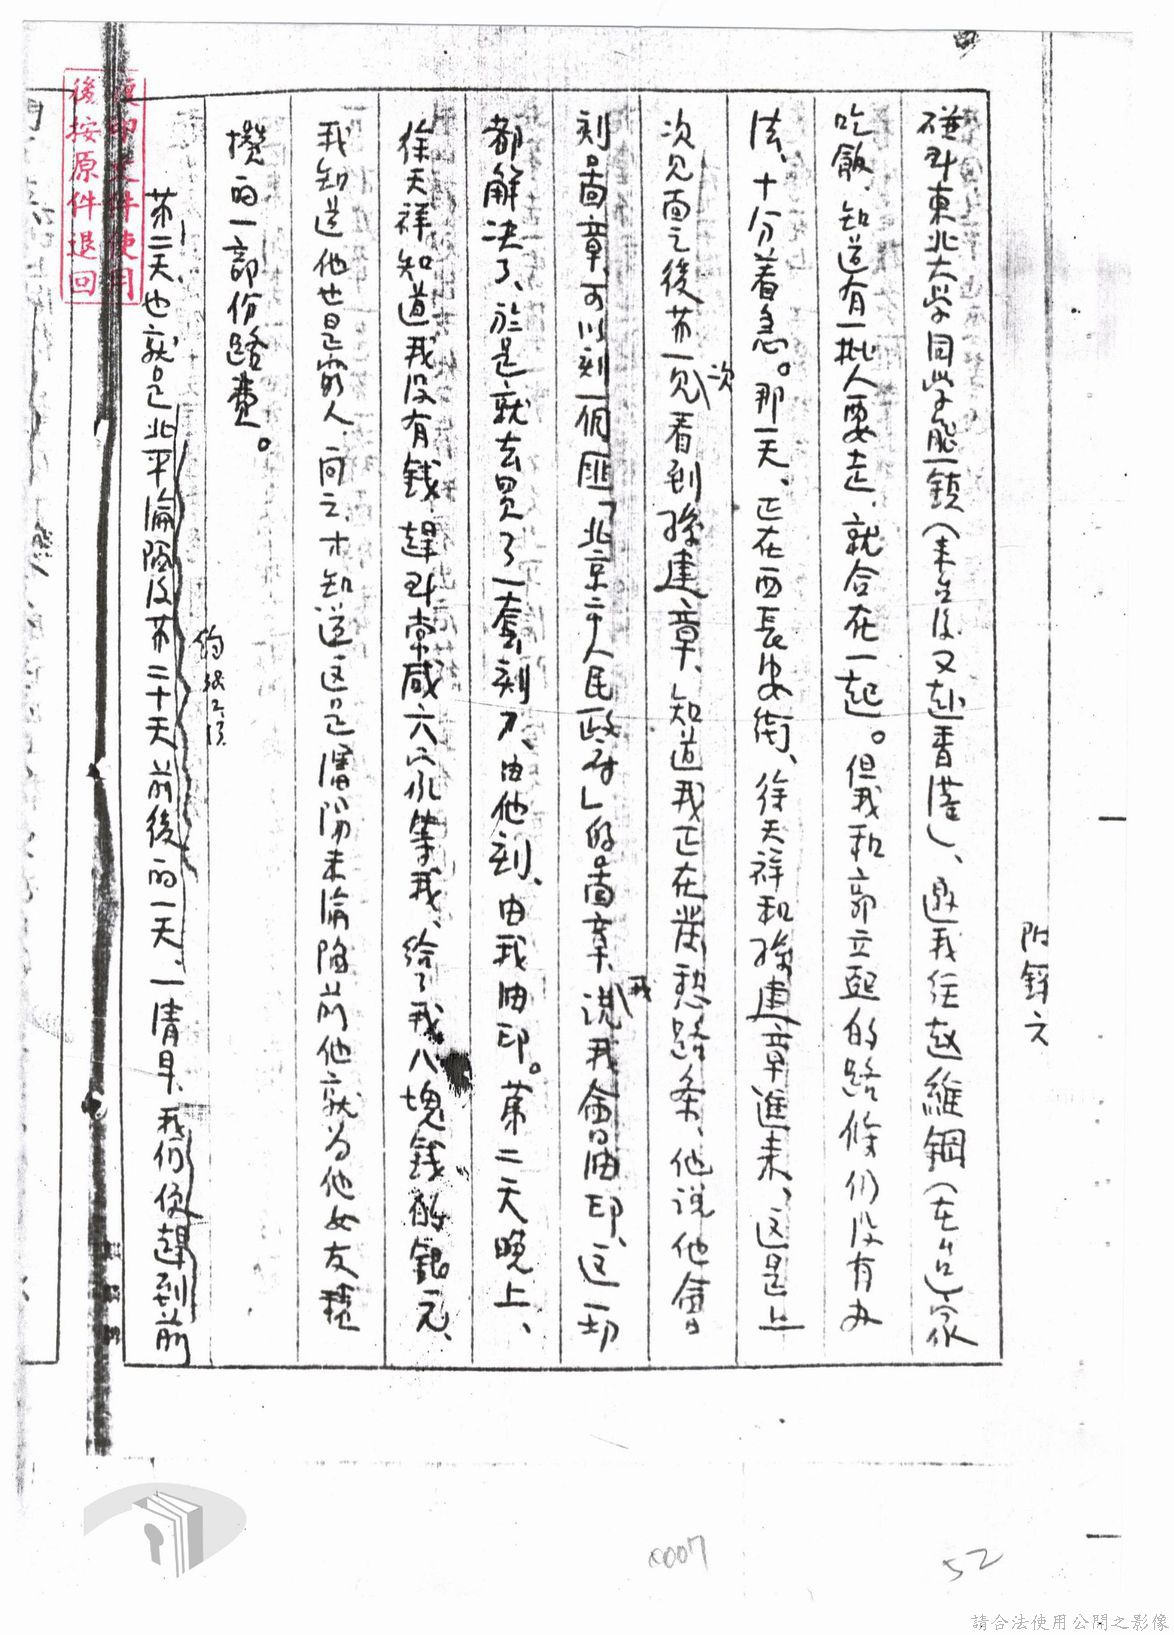 附錄六
碰到東北大學同學熊一鎮(來台後又赴香港)、邀我往趙維鋼(在台)家
吃飯、知道有一批人要走、就合在一起。但我和郭立熙的路條仍沒有办
法、十分着急。那一天、正在西長安街、徐天祥和孫建章進来、这是上
次見面之後第一次見看到孫建章、知道我正在發愁路条、他説他會
刻啚章、可以刻一個匪「北京市人民政府」的啚章、説我會油印、这一切
我
都解决了、於是就去買了一套刻刀、由他刻、由我油印。第二天晚上、
徐天祥知道我没有錢、趕到常咸六家等我、給了我八塊錢的銀元、
我知道他也是窮人、问之、才知道这是瀋陽未淪陷前他就为他女友積
攢的一部份路費。
第二天、也就是北平淪陷後第二十天前後的一天、一清早、我们便趕到前
復印文件使用
後按原件退回
0007
52
請合法使用公開之影像